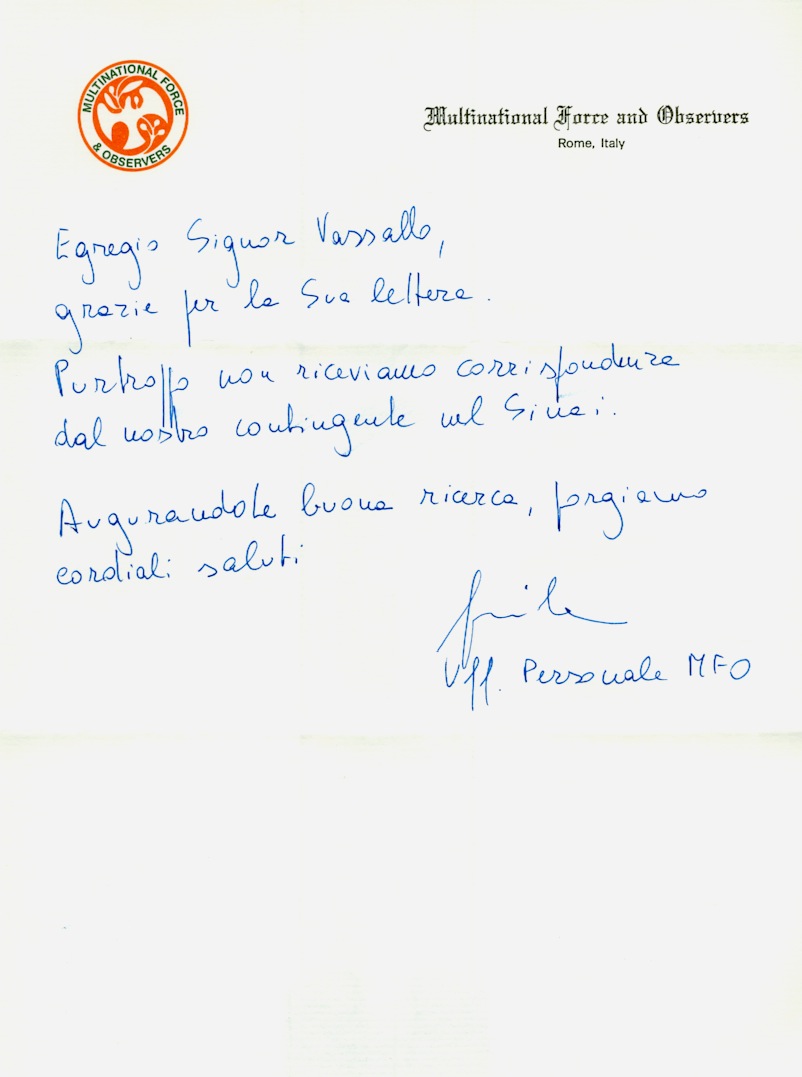 MULTINATIONAL FORCE
& OBSERVERS
Multinational Force and Observers
Rome, Italy
Egregio Signor Vassallo,
grazie per la Sua lettera.
Purtroppo non riceviamo corrispondenza
dal nostro contingente nel Sinai.
Augurandole buona ricerca, porgiamo
cordiali saluti
Uff. Personale MFO